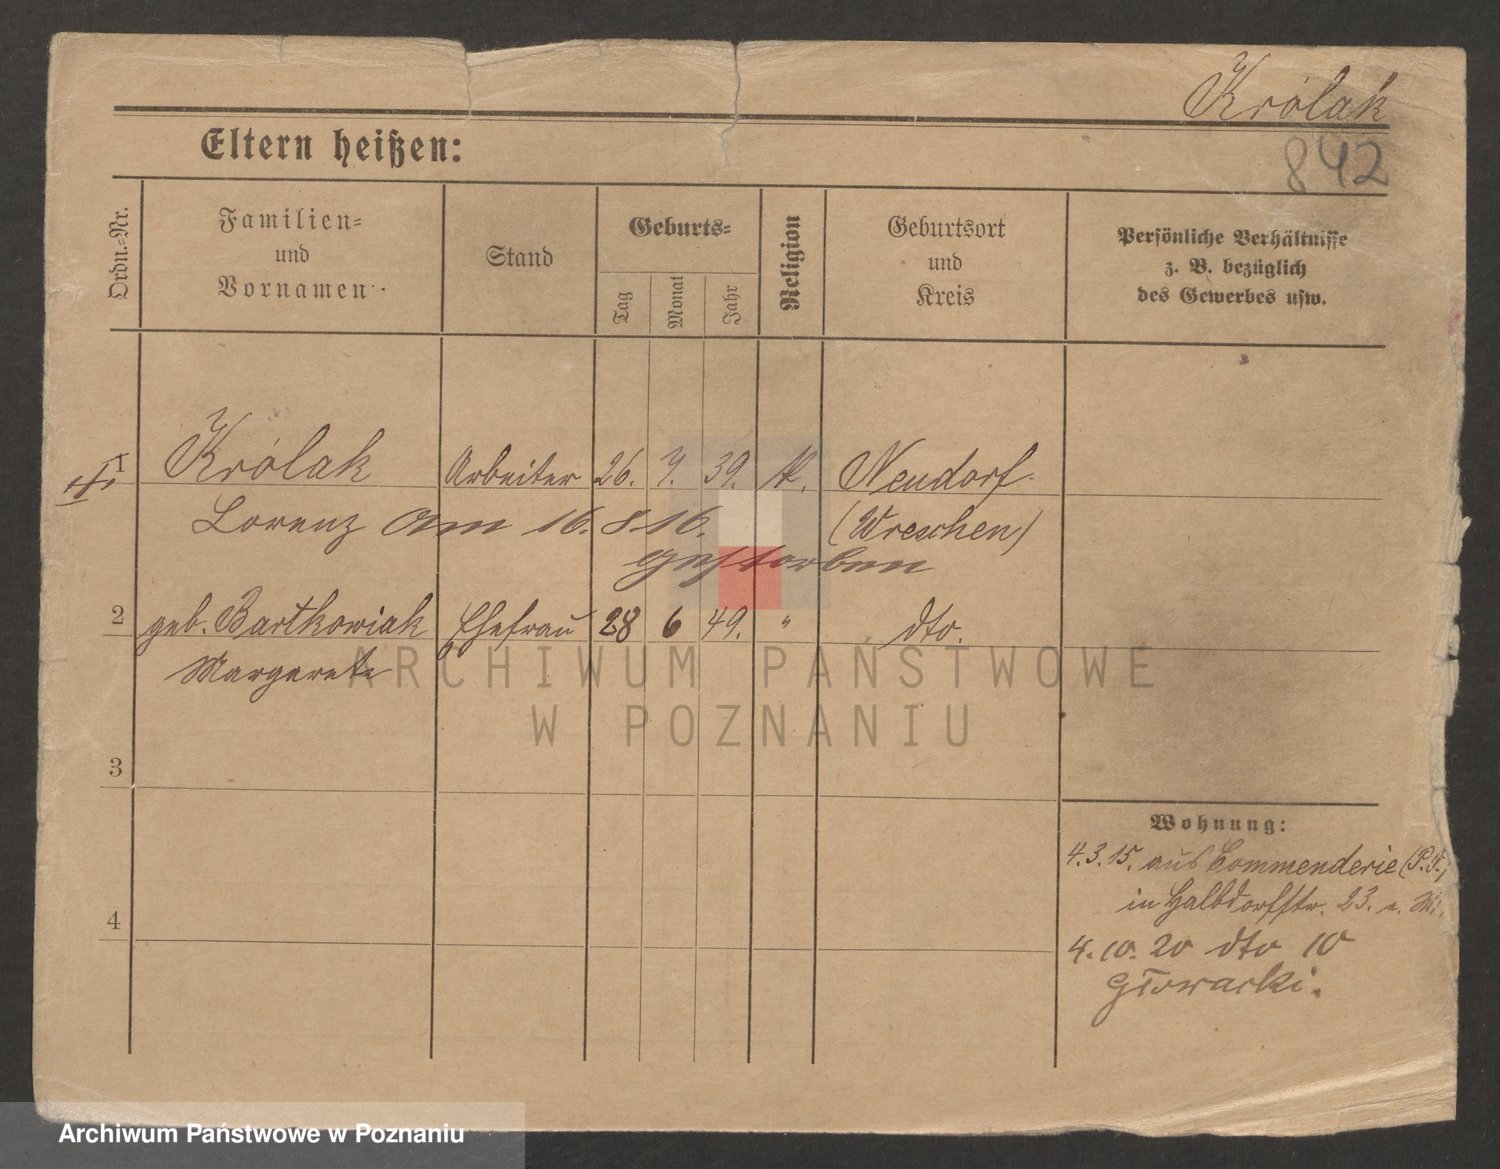 Królak
842
Eltern heißen:
Ordn.=Nr.
Familien=
und
Vornamen
Stand
Geburts=
Tag
Monat
Jahr
Religion
Geburtsort
und
Kreis
Persönliche Verhältnisse
z. B. bezüglich
des Gewerbes usw.
1 Królak Arbeiter 26. 7. 39. K. Neudorf
Lorenz am 16.8.16. (Wreschen)
gestorben
2 geb. Bartkowiak Ehefrau 28 6 49. " dto.
Margarete
3
4
Wohnung:
4.3.15. aus Commenderie (P.F.)
in Halbdorfstr. 23.
4.10.20 dto 10
Głowacki.
ARCHIWUM PAŃSTWOWE
W POZNANIU
Archiwum Państwowe w Poznaniu